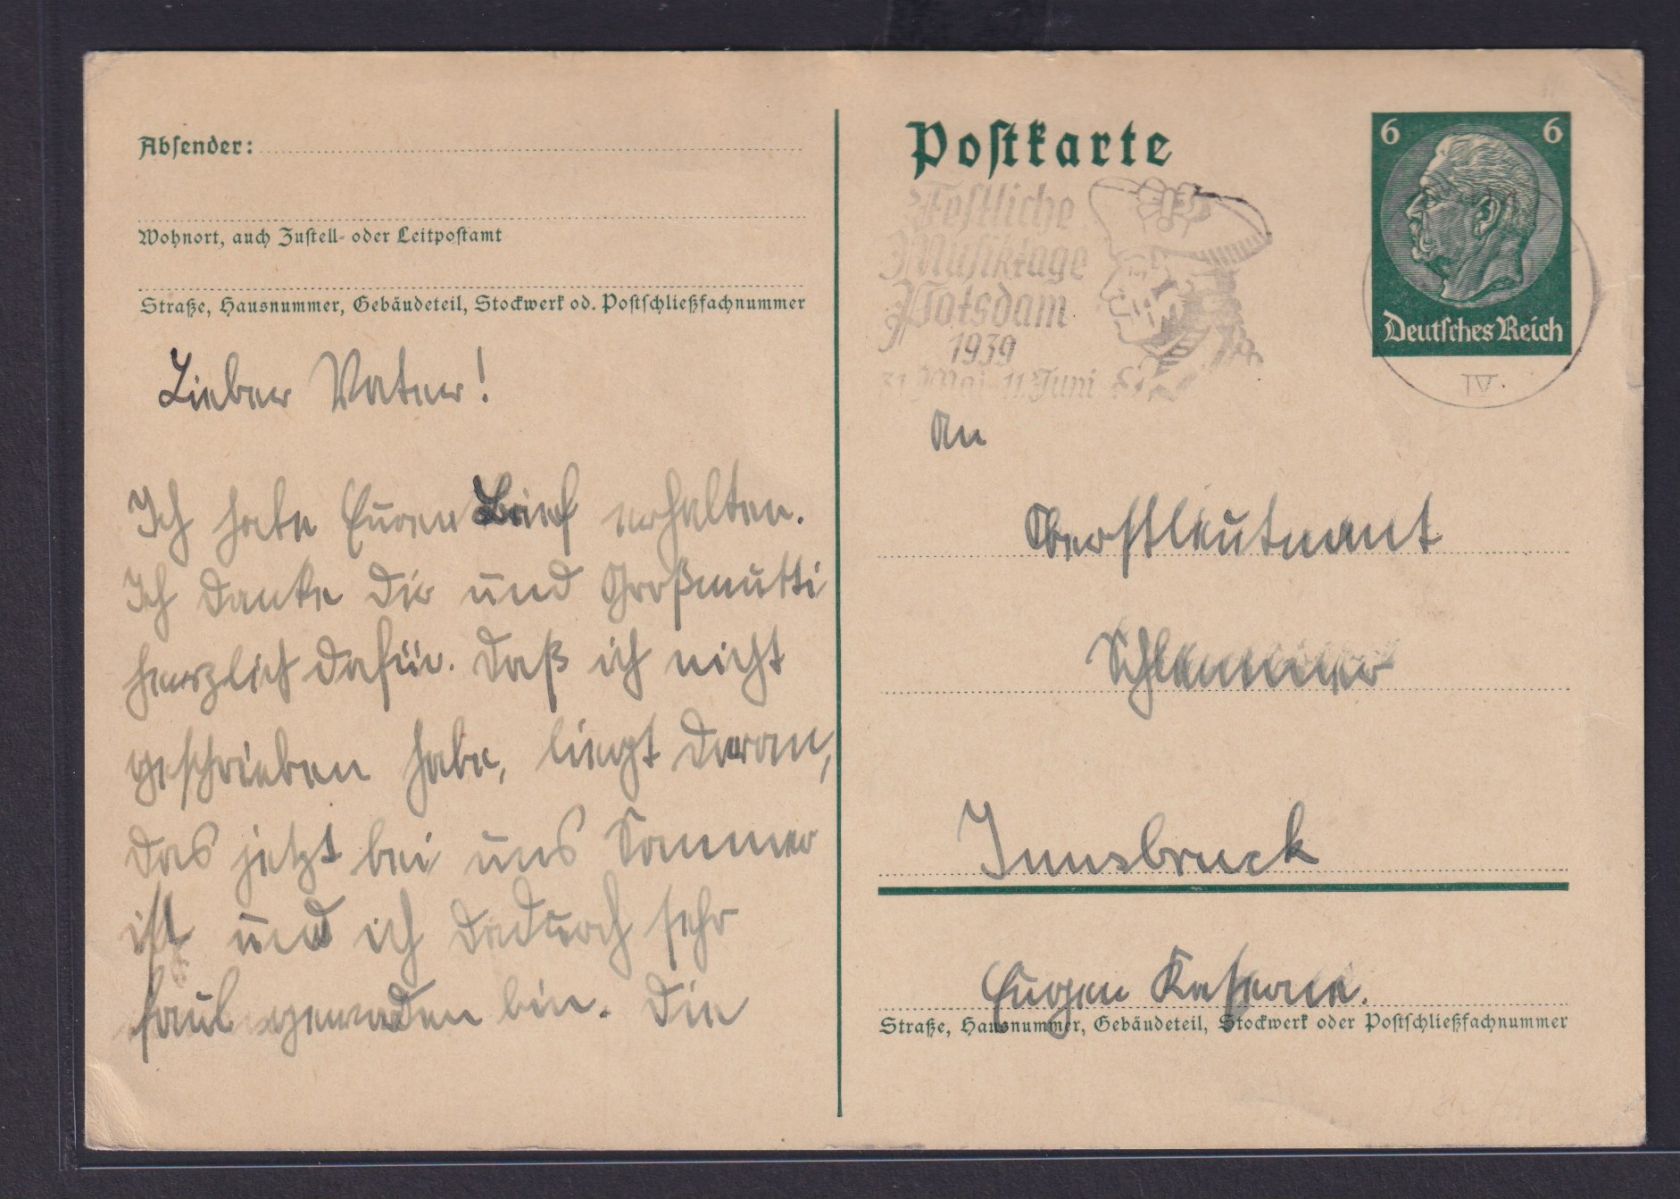 Absender:
Wohnort, auch Zustell- oder Leitpostamt
Straße, Hausnummer, Gebäudeteil, Stockwerk od. Postschließfachnummer
Lieber Vater!
Ich habe Euren Brief erhalten.
Ich danke Dir und Großmutti
herzlich dafür. Daß ich nicht
geschrieben habe, liegt daran,
das jetzt bei uns Sommer
ist und ich dadurch sehr
faul geworden bin. Die
Postkarte
6 6
Deutsches Reich
Festliche
Musiktage
Potsdam
1939
31. Mai - 11. Juni
IV.
An
Oberstleutnant
Schlemmer
Innsbruck
Eugen Kaserne.
Straße, Hausnummer, Gebäudeteil, Stockwerk oder Postschließfachnummer